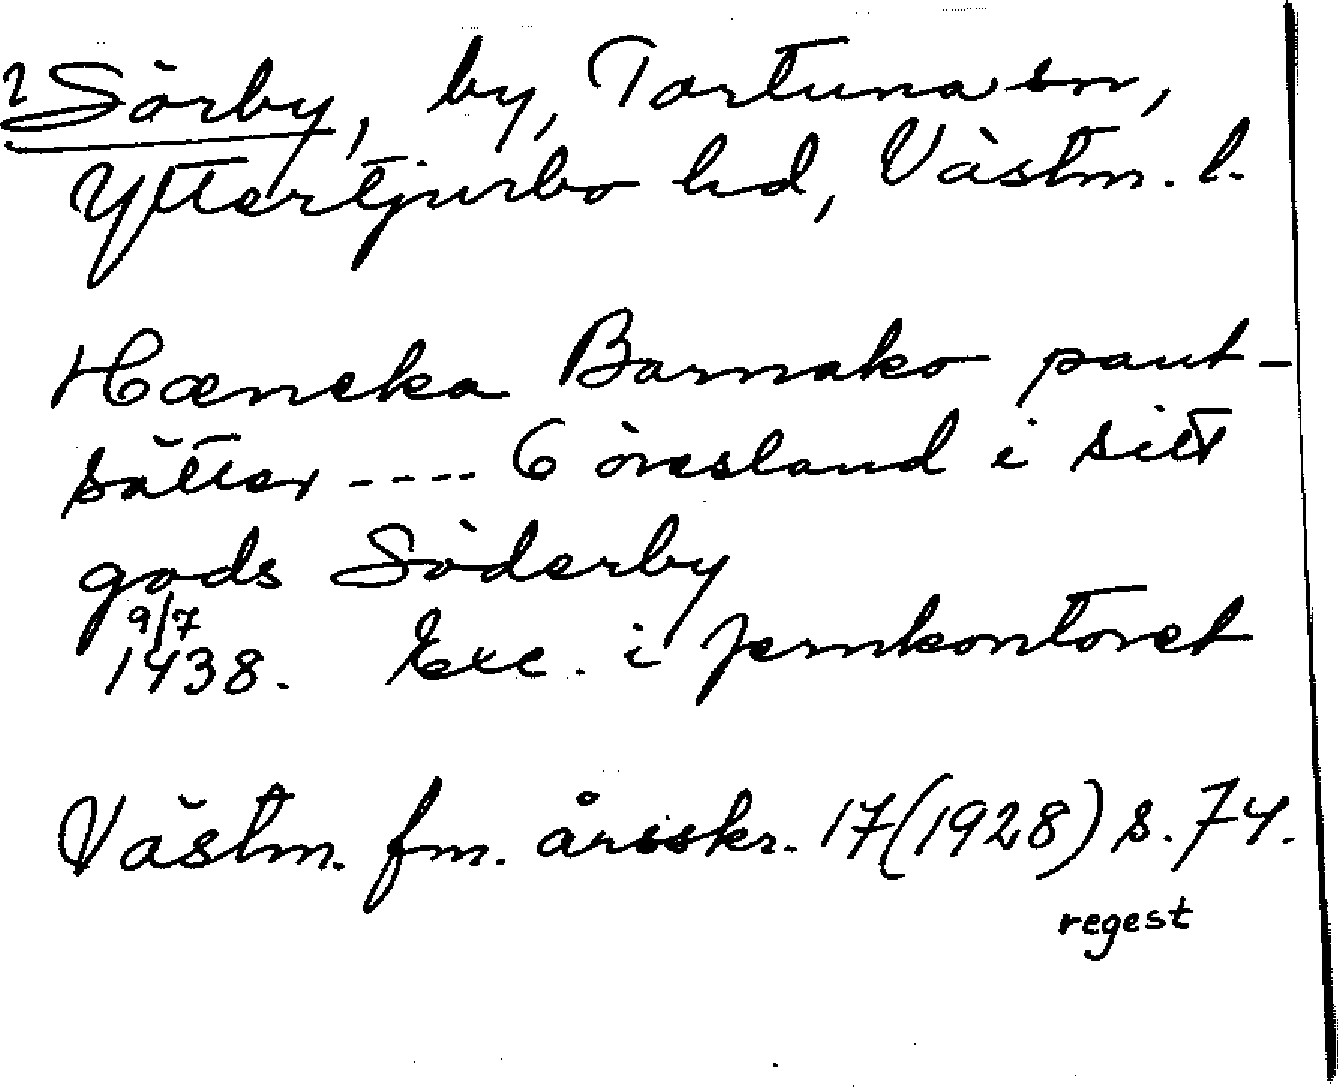 ? Sörby, by, Tortuna sn,
Yttertjurbo hd, Västm. l.
Hæncka Barnako pant-
sätter ---- 6 öresland i sitt
gods Söderby
9/7
1438. Exc. i Jernkontoret
Västm. fm. årsskr. 17(1928) s. 74.
regest